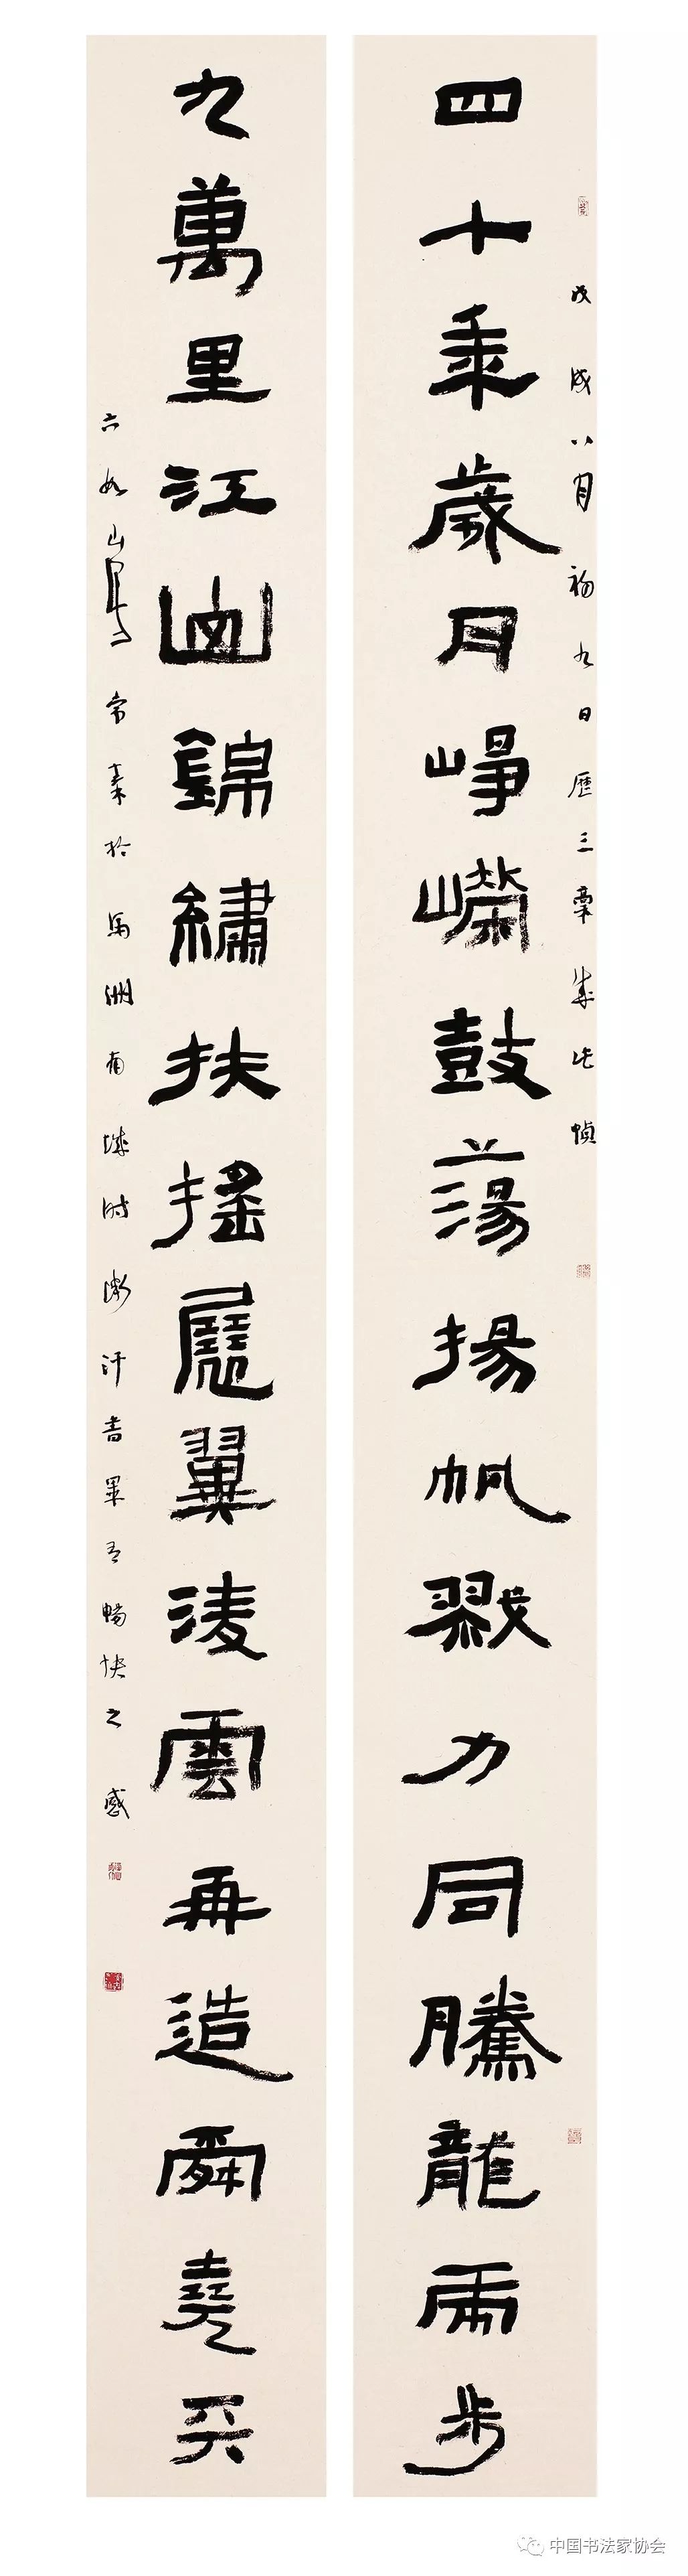 四十年歲月崢嶸鼓蕩揚帆戮力同騰龍虎步
戊戌八月初九日歷三稿成此幀
九萬里江山錦繡扶搖展翼凌雲再造舜堯天
六如山居 常秦於馬洲南城時淋汗書畢有暢快之感
中国书法家协会